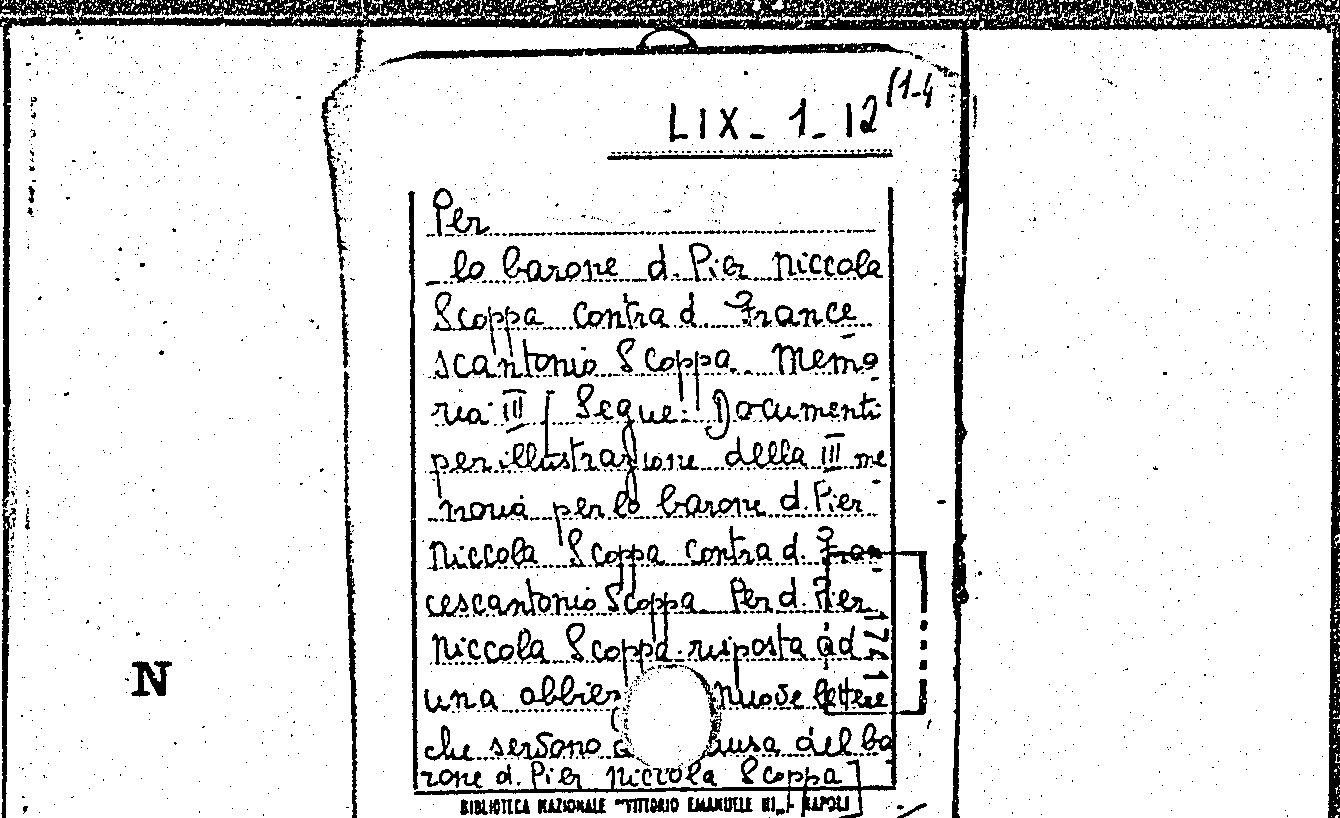 LIX - 1 - 12 (1-4
Per
lo barone d. Pier Niccola
Scoppa contra d. France
scantonio Scoppa. Memo
ria III [Segue: Documenti
per illustrazione della III me
moria per lo barone d. Pier
Niccola Scoppa contra d. Fran
cescantonio Scoppa. Per d. Pier
Niccola Scoppa risposta ad
una obbie nuove lettere
che servono ausa del ba
rone d. Pier Niccola Scoppa]
BIBLIOTECA NAZIONALE "VITTORIO EMANUELE III" - NAPOLI
1741
N